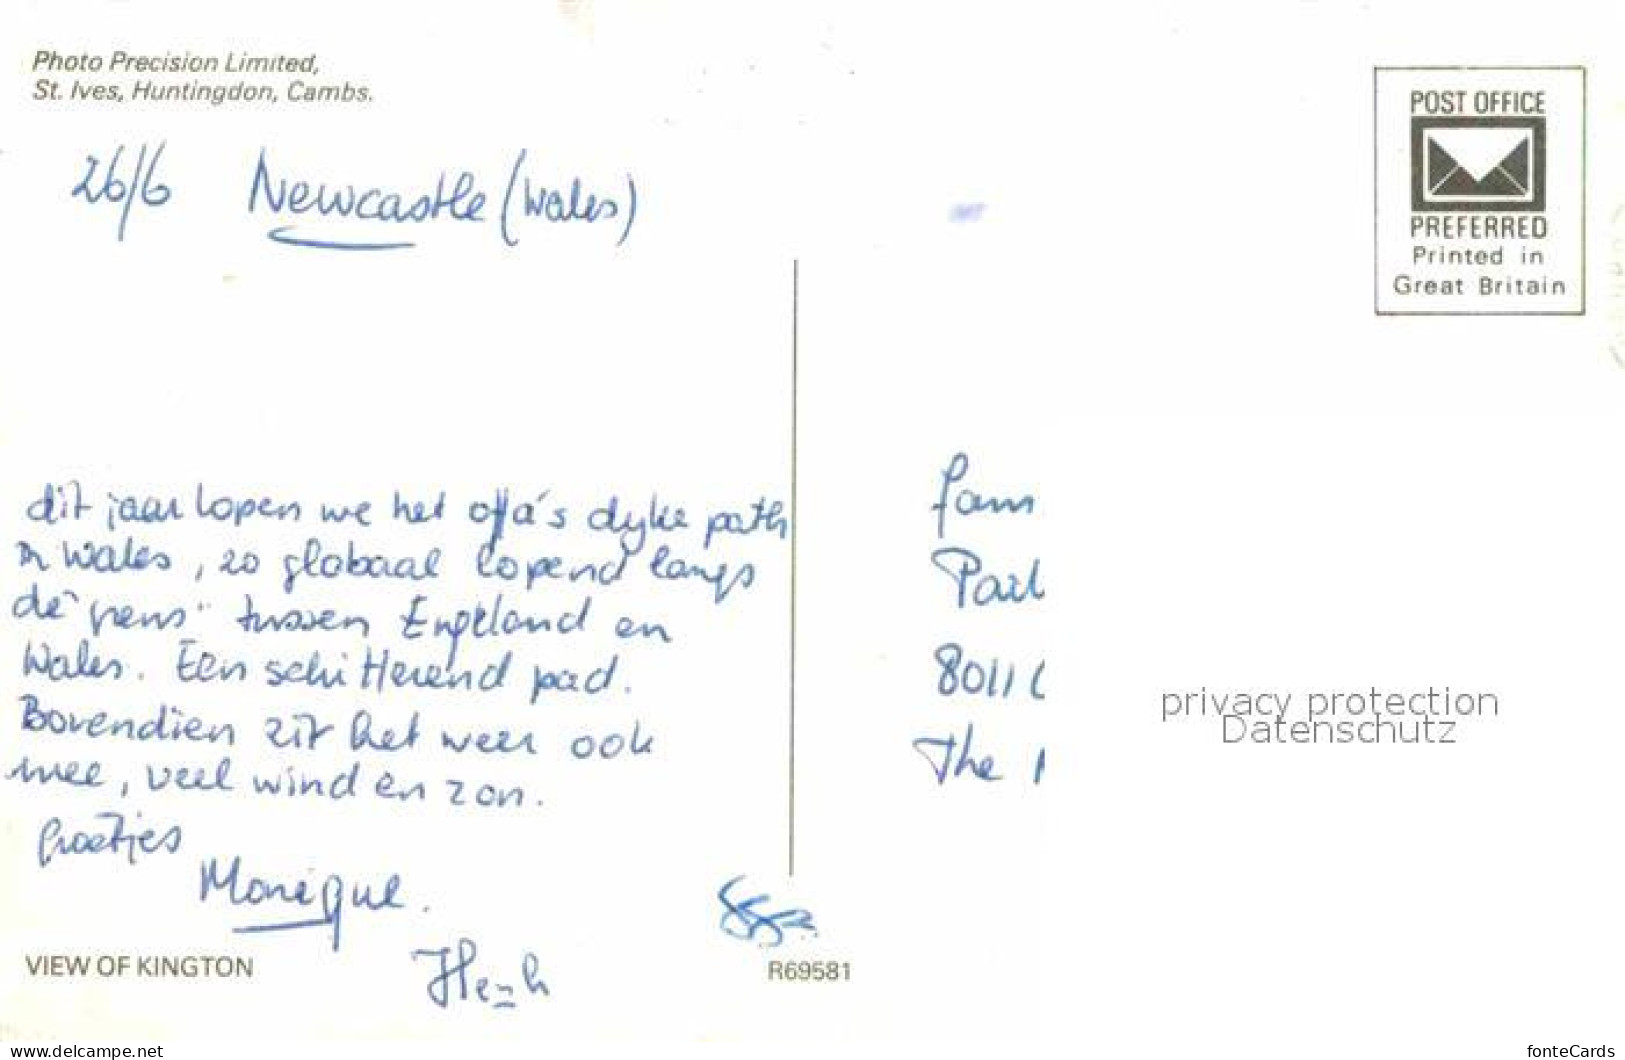 Photo Precision Limited,
St. Ives, Huntingdon, Cambs.
26/6 Newcastle (Wales)
POST OFFICE
PREFERRED
Printed in
Great Britain
dit jaar lopen we het offa's dyke path
in Wales, zo globaal lopend langs
de "grens" tussen Engeland en
Wales. Een schitterend pad.
Bovendien zit het weer ook
mee, veel wind en zon.
Groetjes
Monique.
Henk
fam
8011
The
privacy protection
Datenschutz
VIEW OF KINGTON
R69581
www.delcampe.net
fonteCards